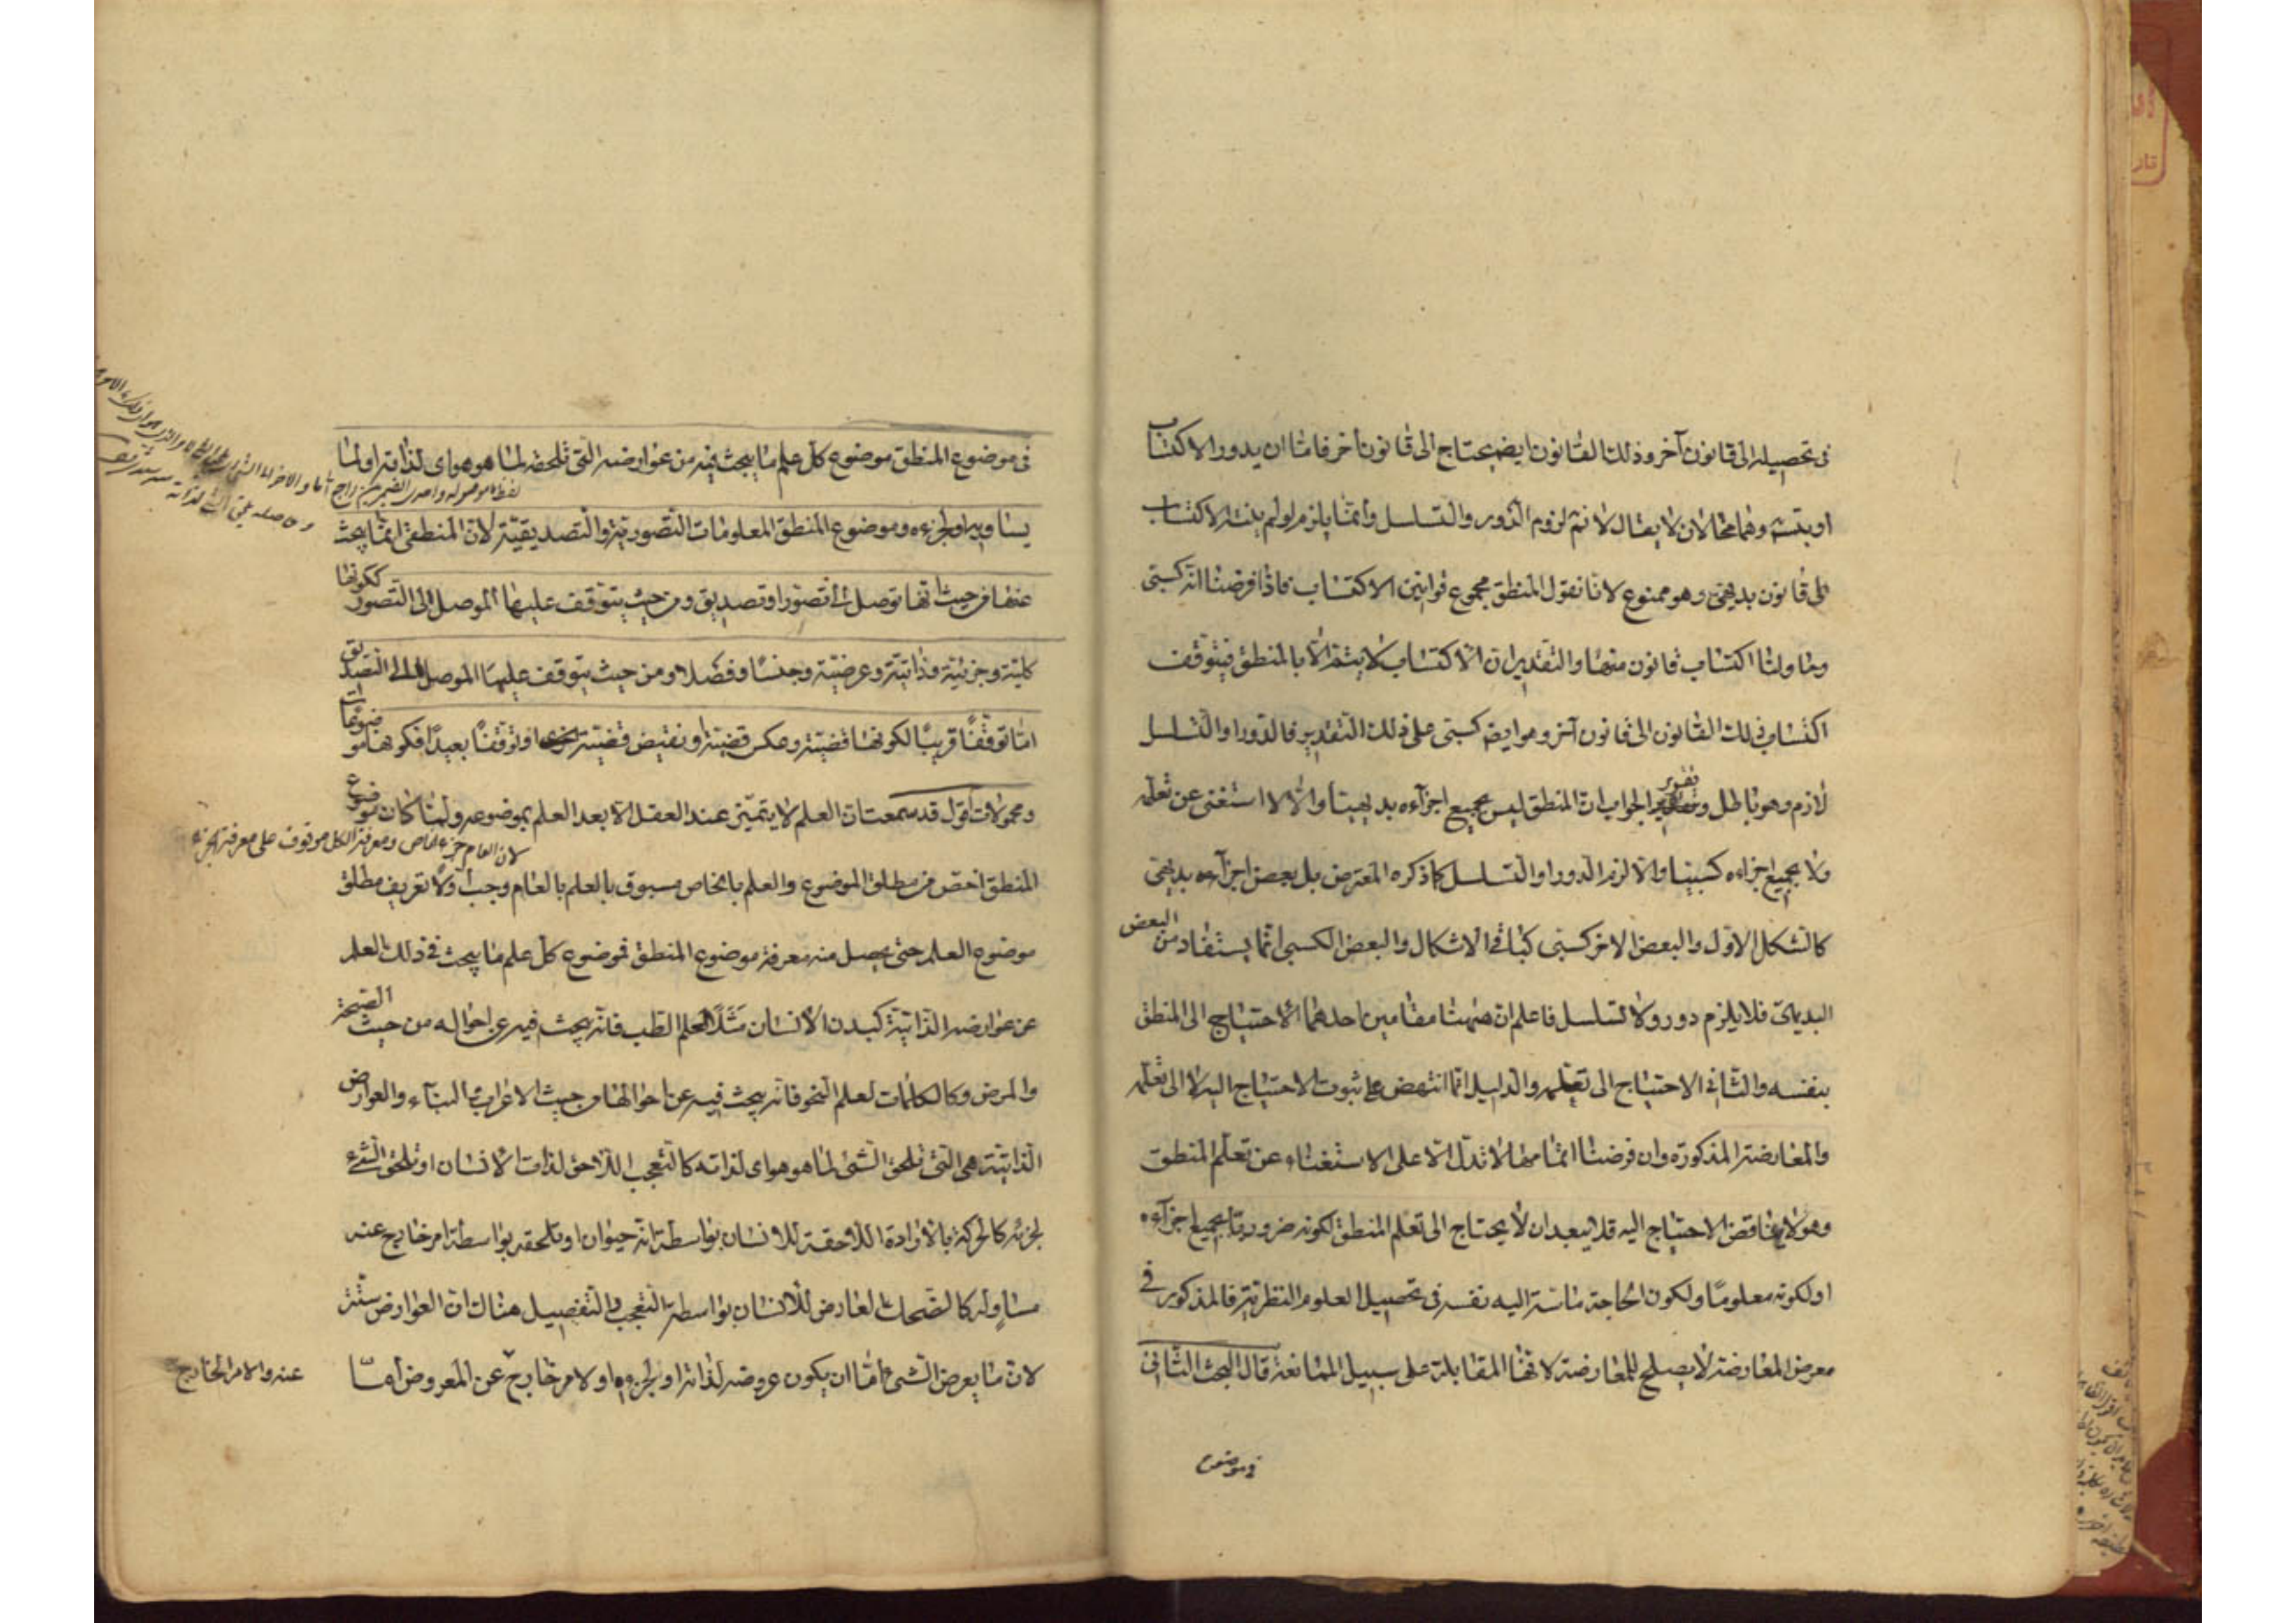 في تحصيله الى قانون آخر وذلك القانون ايضا يحتاج الى قانون اخر فاما ان يدور الاكتساب
او يتسلسل وهما محالان لا يقال لا نسلم لزوم الدور والتسلسل وانما يلزم لو لم ينته الاكتساب
الى قانون بديهي وهو ممنوع لانا نقول المنطق مجموع قوانين الاكتساب فاذا فرضنا انه كسبي
وحاولنا اكتساب قانون منها والتقدير ان الاكتساب لا يتم الا بالمنطق فيتوقف
اكتساب ذلك القانون الى قانون آخر وهو ايضا كسبي على ذلك التقدير فالدور او التسلسل
لازم وهو باطل وتقرير الجواب ان المنطق ليس بجميع اجزآءه بديهيا والا لاستغنى عن تعلمه
ولا بجميع اجزاءه كسبيا والا لزم الدور او التسلسل كما ذكره المعترض بل بعض اجزآءه بديهي
كالشكل الاول والبعض الاخر كسبي كباقي الاشكال والبعض الكسبي انما يستفاد من البعض
البديهي فلا يلزم دور ولا تسلسل فاعلم ان ههنا مقامين احدهما الاحتياج الى المنطق
بنفسه والثاني الاحتياج الى تعلمه والدليل انما انتهض على ثبوت الاحتياج اليه لا الى تعلمه
والمعارضة المذكورة وان فرضنا اتمامها لا تدل الا على الاستغناء عن تعلم المنطق
وهو لا يناقض الاحتياج اليه فلا يبعد ان لا يحتاج الى تعلم المنطق لكونه ضروريا بجميع اجزآءه
او لكونه معلوما ولكون الحاجة ماسة اليه نفسه في تحصيل العلوم النظرية فالمذكور في
معرض المعارضة لا يصلح للمعارضة لانها المقابلة على سبيل الممانعة قال البحث الثاني
في موضوع
في موضوع المنطق موضوع كل علم ما يبحث فيه عن عوارضه التي تلحقه لما هو هو اى لذاته او لما
يساويه او لجزءه وموضوع المنطق المعلومات التصورية والتصديقية لان المنطقي انما يبحث
عنها من حيث انها توصل الى تصور او تصديق ومن حيث يتوقف عليها الموصل الى التصور ككونها
كلية وجزئية وذاتية وعرضية وجنسا وفصلا ومن حيث يتوقف عليها الموصل الى التصديق
اما توقفا قريبا لكونها قضية وعكس قضية او نقيض قضية او توقفا بعيدا فكونها موضوعات
ومحمولات اقول قد سمعت ان العلم لا يتميز عند العقل الا بعد العلم بموضوعه ولما كان موضوع
لان العام جزء الخاص ومعرفة الكل موقوف على معرفة الجزء
المنطق اخص من مطلق الموضوع والعلم بالخاص مسبوق بالعلم بالعام وجب اولا تعريف مطلق
موضوع العلم حتى يحصل منه معرفة موضوع المنطق فموضوع كل علم ما يبحث في ذلك العلم
عن عوارضه الذاتية كبدن الانسان مثلا لعلم الطب فانه يبحث فيه عن احواله من حيث الصحة
والمرض وكالكلمات لعلم النحو فانه يبحث فيه عن احوالها من حيث الاعراب والبنآء والعوارض
الذاتية هي التي تلحق الشئ لما هو هو اى لذاته كالتعجب اللاحق لذات الانسان او تلحق الشئ
لجزئه كالحركة بالارادة اللاحقة للانسان بواسطة انه حيوان او تلحقه بواسطة امر خارج عنه
مساو له كالضحك العارض للانسان بواسطة التعجب والتفصيل هناك ان العوارض ستة
لان ما يعرض الشئ اما ان يكون عروضه لذاته او لجزءه او لامر خارج عن المعروض اما
عنه والامر الخارج